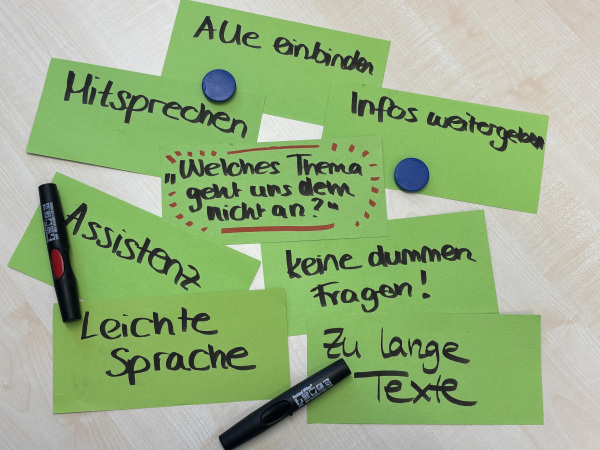 Alle einbinden
Mitsprechen
Infos weitergeben
„Welches Thema
geht uns denn
nicht an?"
Assistenz
keine dummen
Fragen!
Leichte
Sprache
Zu lange
Texte